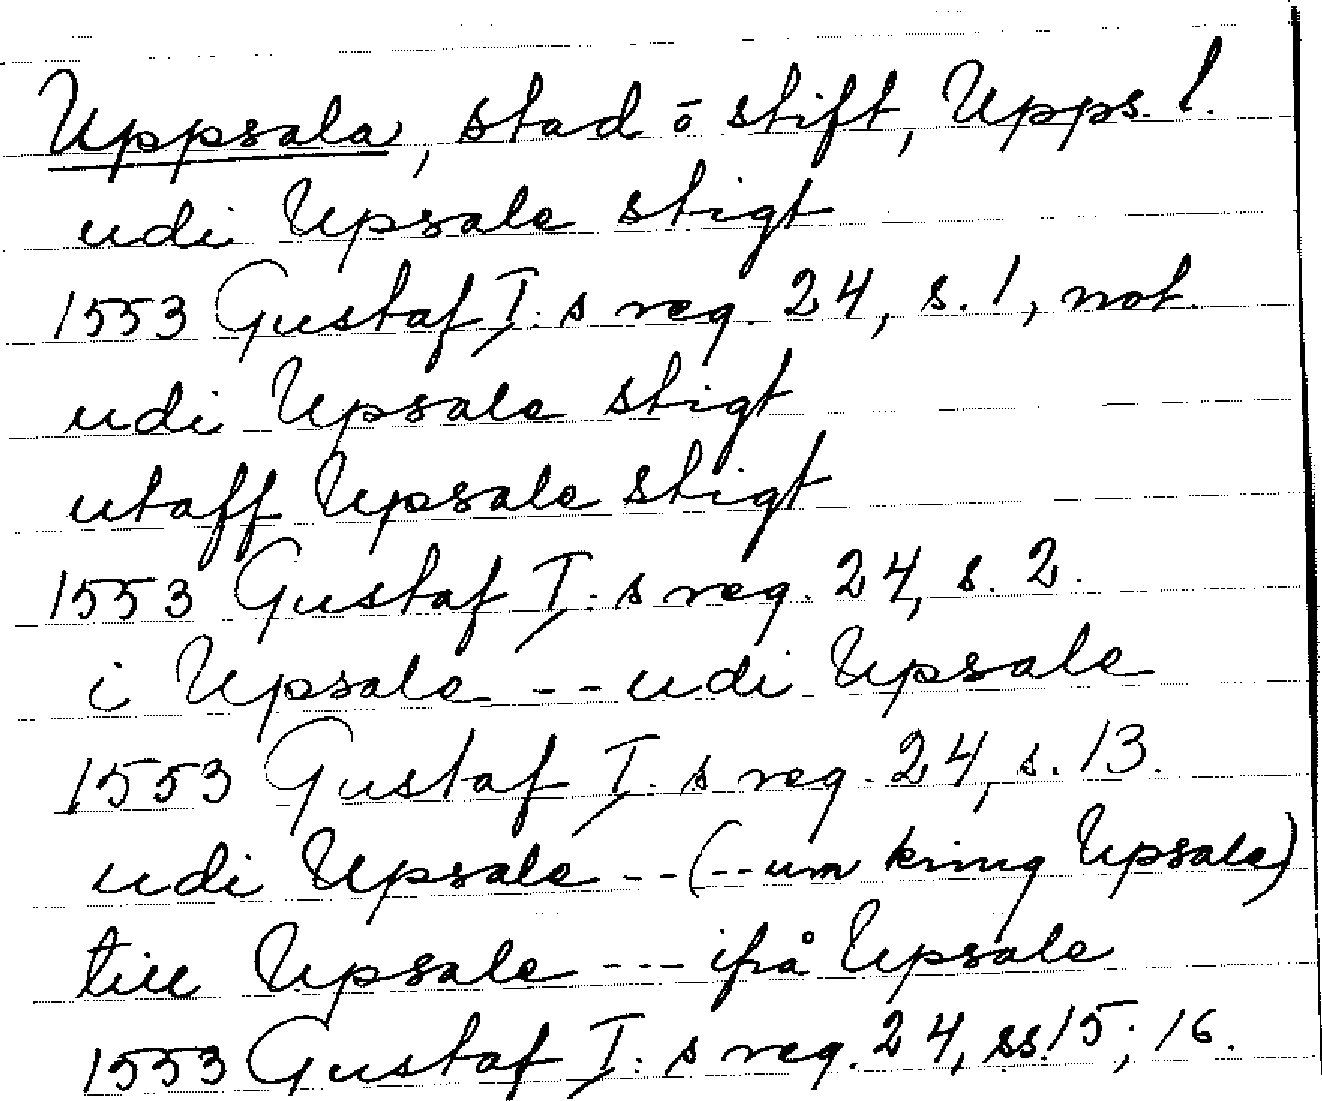 Uppsala, stad ō stift, Upps. l.
udi Upsale stigt
1553 Gustaf I:s reg. 24, s. 1, not.
udi Upsale stigt
utaff Upsale stigt
1553 Gustaf I:s reg. 24, s. 2.
i Upsale --- udi Upsale
1553 Gustaf I:s reg. 24, s. 13.
udi Upsale -- (-- um kring Upsale)
till Upsale --- ifrå Upsale
1553 Gustaf I:s reg. 24, ss. 15; 16.